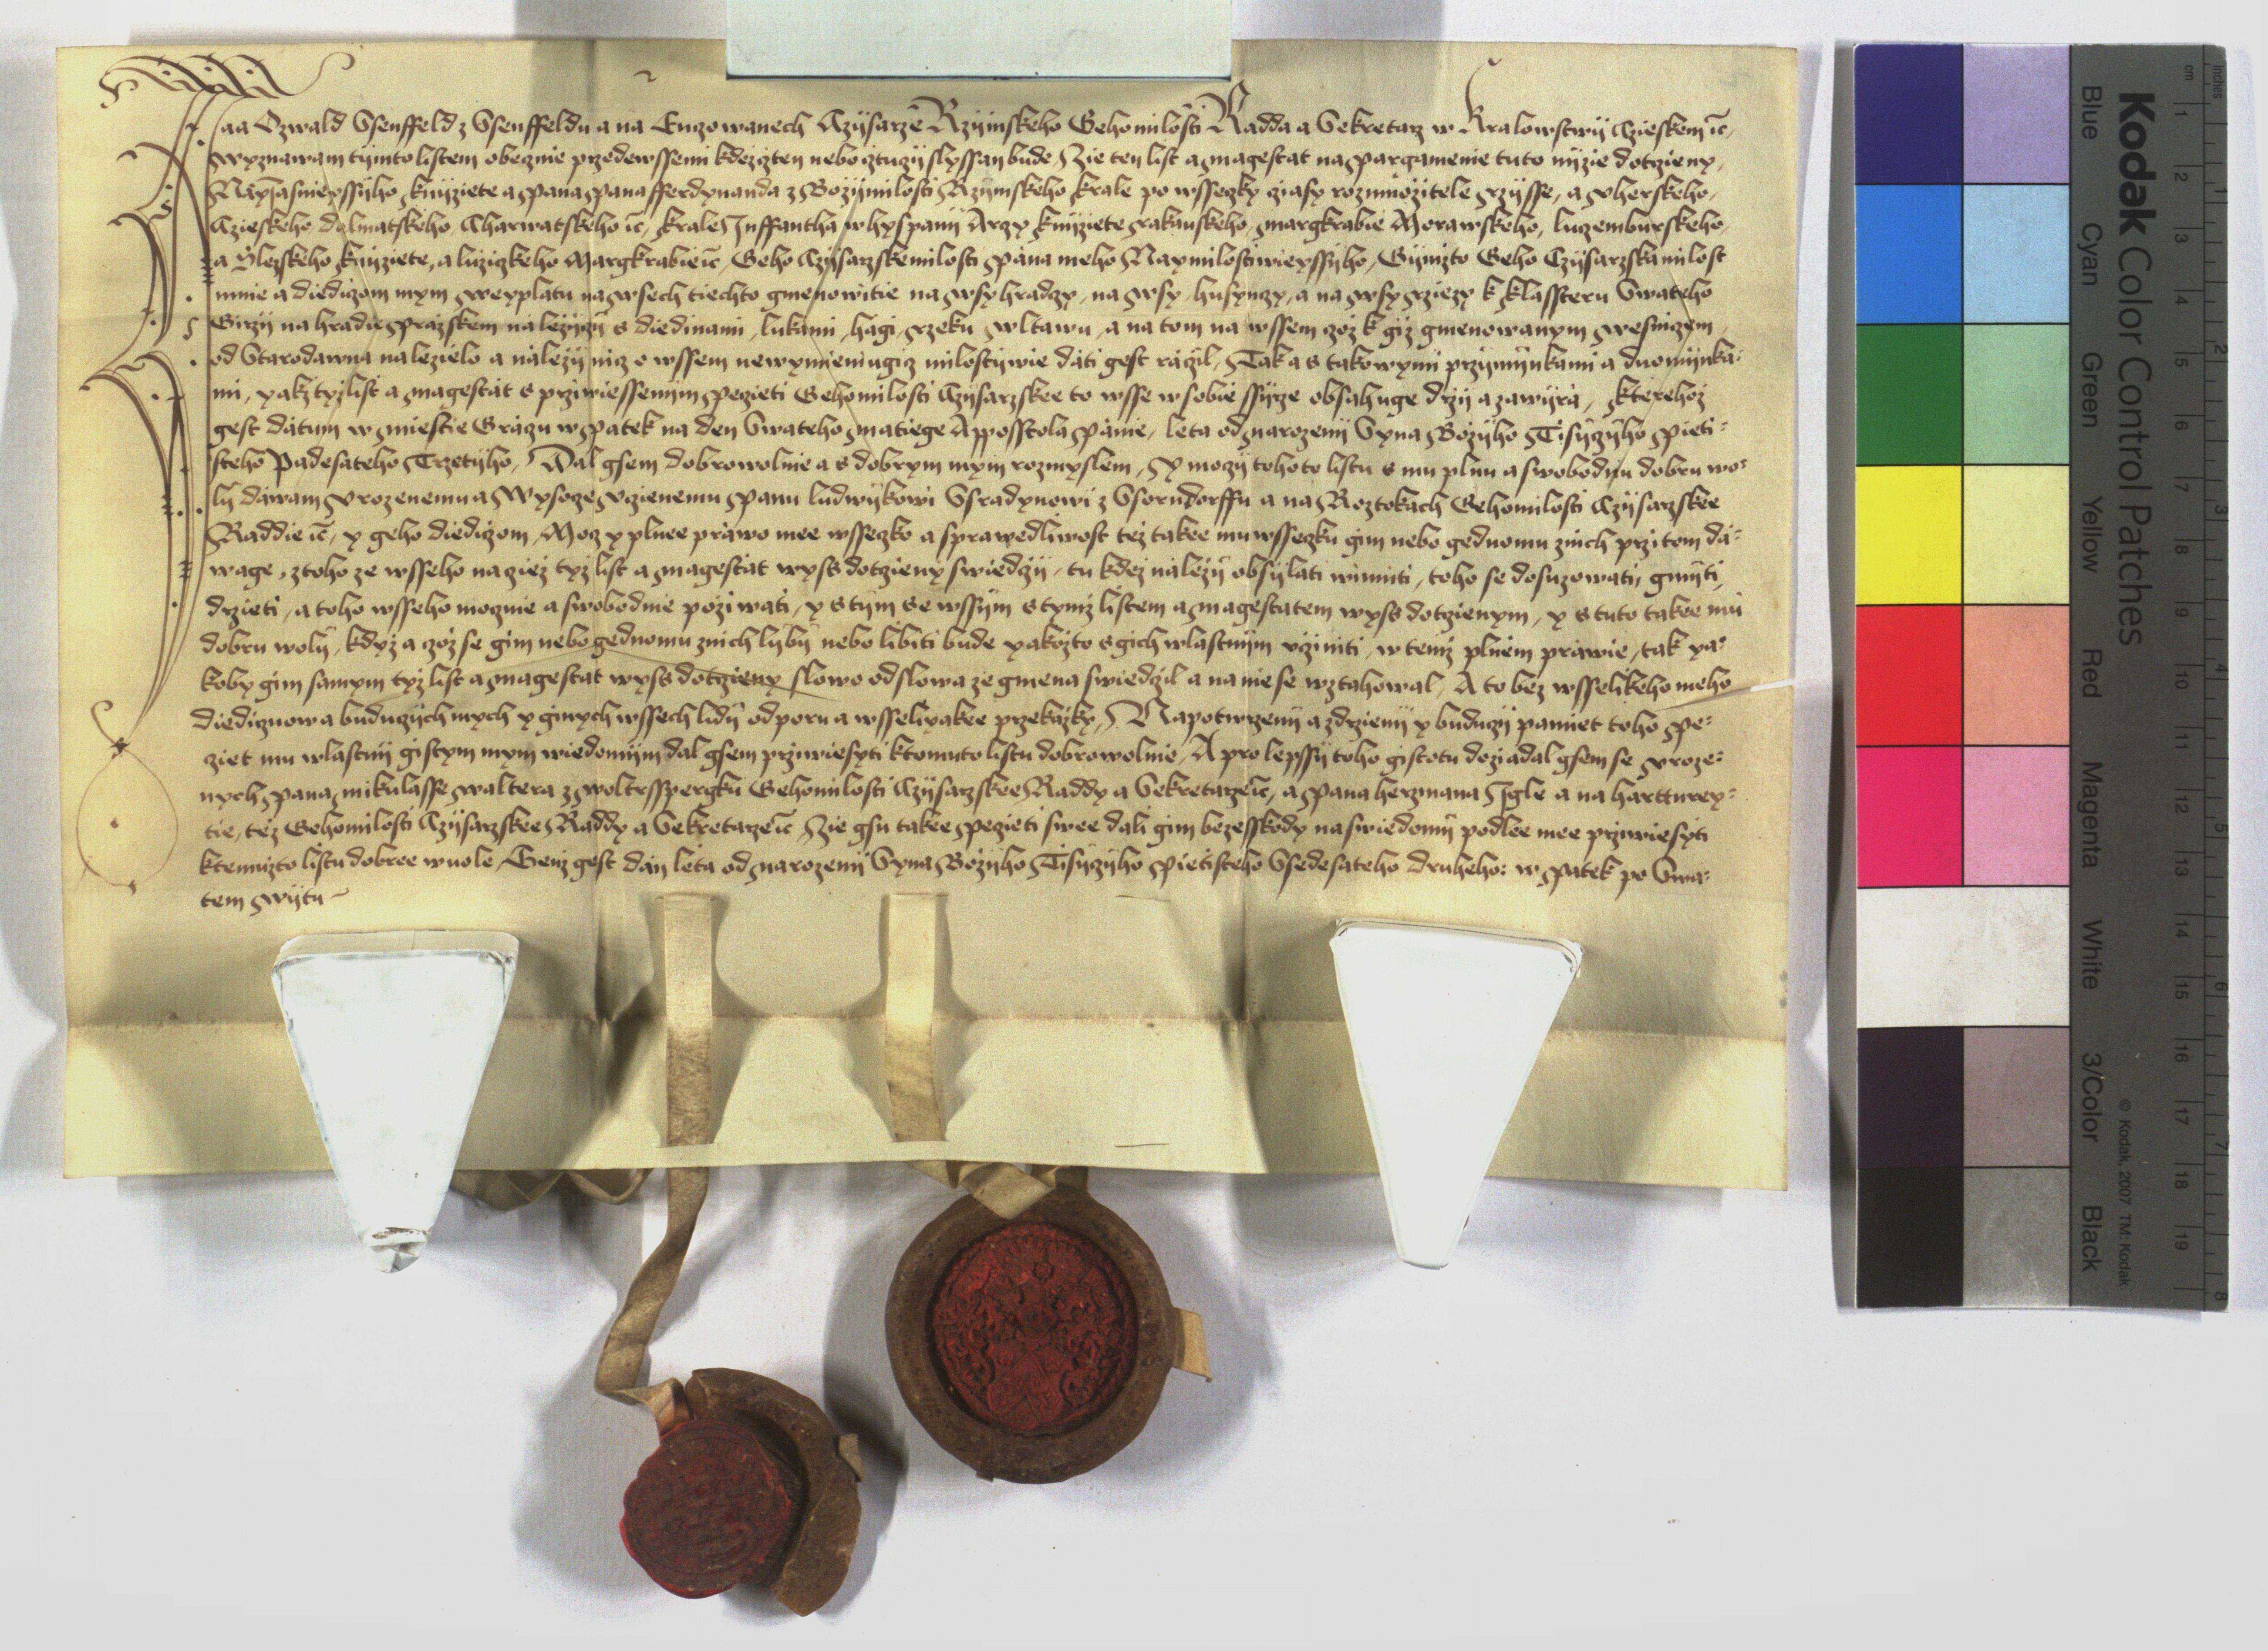 Jaa Ozwald Ssenffeld z Ssenffeldu a na Enczowanech Czysarze Rzymskeho Gehomilosti Radda a Sekretarz w Kralowstwij Czieskem ic,
wyznawam tijmto listem obecznie przedewssemi kdez czten nebo cztuczy slyssan bude, Zie ten list a magestat na pargamenie tuto nijzie dotczieny,
Nayjasnieyssyho knijziete a pana pana fferdynanda z Bozij milosti Rzymskeho krale po wsseczky cziasy rozmnozitele rzijsse, a vherskeho,
Czieskeho dalmatskeho Charwatskeho ic, krale, Inffantha w hyspanij Arczy knijziete rakauskeho, margkrabie Morawskeho, luczemburskeho,
a Slezskeho knijziete, a luziczkeho Margkrabie ic, Geho Czysarzske milosti pana meho Naymilostiwieyssyho, Gijmzto Geho Czysarzska milost
mnie a diediczom mym wey platu na wsech tiechto gmenowitie na wsy hradczy, na wsy husynczy, a na wsy rziezy k klassteru Swateho
Girzij na hradie prazskem nalezyczy s diedinami, lukami, hagi, rzeku wltawu, a na tom na wssem czoz k giz gmenowanym wesniczem
od Starodawna nalezielo a nalezij nicz o wssem newymieniugicz milostiwie dati gest raczil, Tak a s takowymi przymijnkami a duomijnka-
mi, yakz tyz list a magestat s prziwiessenym peczieti Gehomilosti Czysarzskee to wsse w sobie ssyrze obsahuge drzij a zawijra, kterehoz
gest datum w miestie Graczu w patek na den Swateho matiege Apposstola panie, leta od narozenij Syna Bozijho Tisyczyho pieti-
steho Padesateho Trzetijho, Dal gsem dobrowolnie a s dobrym mym rozmyslem, Y moczij tohoto listu s mu plnu a swobodnu dobru wo-
lij dawam vrozenemu a Wysocze vczienemu panu ludwijkowi Ssradynowi z Ssorndorffu a na Roztokach Gehomilosti Czysarzskee
Raddie ic, y geho diediczom, Mocz y plnee prawo mee wsseczko a sprawedliwost tez takee mu wsseczku gim nebo gednomu znich przi tom da-
wage, z toho ze wsseho nacziez tyz list a magestat wyss dotczieny swiedczij, tu kdez nalezij obsylati winniti, toho se dosuzowati, gmijti,
drzieti, a toho wsseho mocznie a swobodnie poziwati, y s tijm se wssijm s tymz listem a magestatem wyss dotczienym, y s tuto takee mu
dobru wolij, kdyz a czoz se gim nebo gednomu znich lijbij nebo libiti bude yakozto s gich wlastnijm vcziniti, w temz plnem prawie, tak ya-
koby gim samym tyz list a magestat wyss dotczieny slowo od slowa ze gmena swiedczil a na nie se wztahowal, A to bez wsselikeho meho
diedicznow a buduczych mych y ginych wssech lidij odporu a wsseliyakee przekazky, Na potwrzenij a zdrzienij y buduczij pamiet toho pe-
cziet mu wlastnij gistym mym wiedomijm dal gsem prziwiesyti k tomuto listu dobrowolnie, A pro lepssy toho gistotu doziadal gsem se vroze-
nych pana mikulasse waltera z woltrsspergku Gehomilosti Czysarzskee Raddy a Sekretarze ic, a pana herzmana Igle a na hartturey-
tie, tez Gehomilosti Czysarzskee Raddy a Sekretarze ic Zie gsu takee peczieti swee dali gim bezesskody na swiedomij podlee mee prziwiesyti
k temuzto listu dobree wuole, Genz gest dan leta od narozenij Syna Bozijho Tisyczyho pietisteho Ssedesateho druheho: w patek po Swa-
tem wijtu
Kodak Color Control Patches
Blue Cyan Green Yellow Red Magenta White 3/Color Black
© Kodak, 2007 TM: Kodak
cm 1 2 3 4 5 6 7 8 9 10 11 12 13 14 15 16 17 18 19
inches 1 2 3 4 5 6 7 8